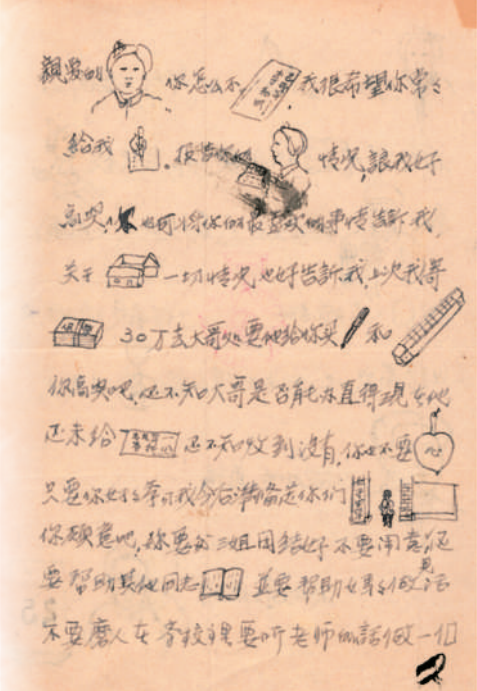 親爱的 你怎么不 我很希望你常々
給我 报告你的 情况,讓我好
高兴, 也可将你们最喜欢的事情告訴我,
关于 一切情况也好告訴我,上次我寄
30万去大哥处要他給你买 和
你高兴吧,还不知大哥是否能办直得現在他
还未给 还不知收到没有,你也不要 心
只要你好好 我今后準備送你们
你願意吧,你要与三姐団结好不要闹意見还
要帮助其他同志 並要帮助妈々做活
不要磨人在学校里要听老师的話做一个